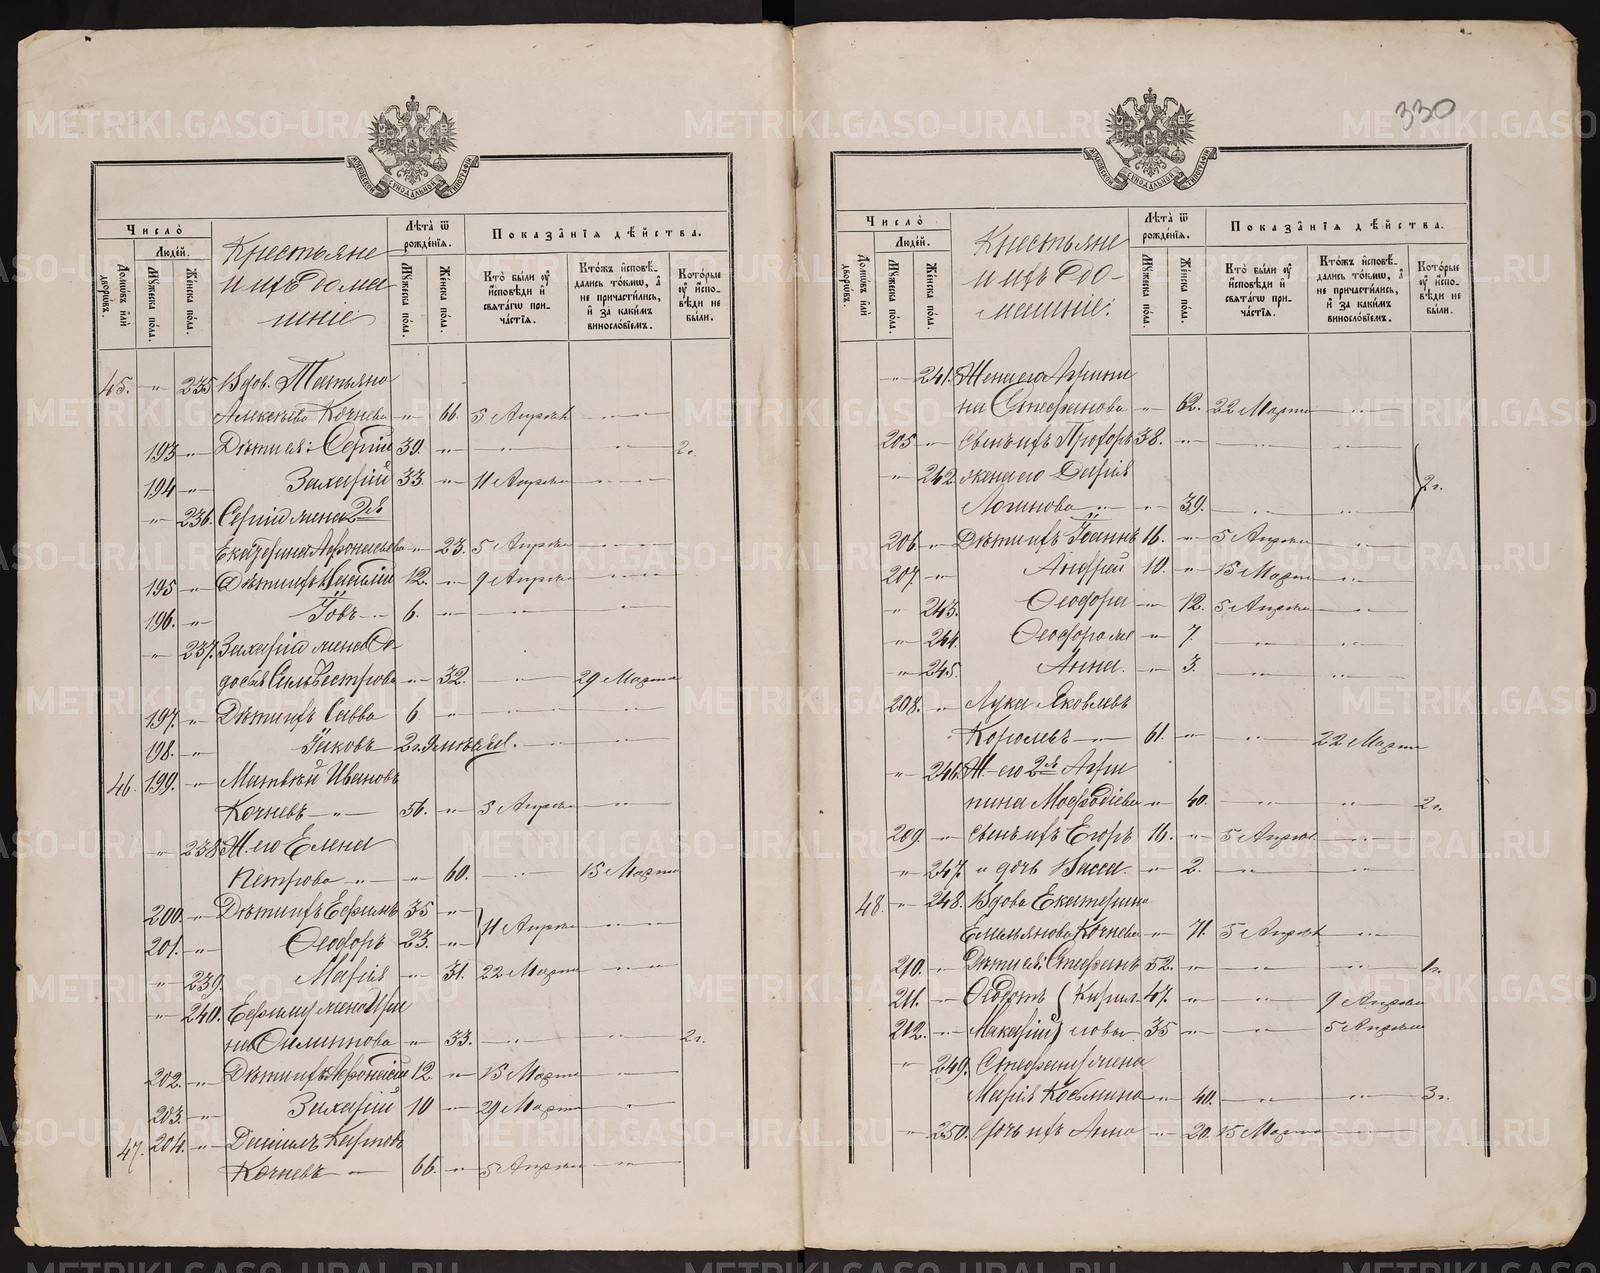 330
Число̀
Людéй.
Домо́въ и҆лѝ дворо́въ.
Мꙋ́жеска по́ла.
Же́нска по́ла.
Крестьяне
и ихъ дома
шніе
Лѣ́та ѿ рожде́нїѧ.
Мꙋ́жеска по́ла.
Же́нска по́ла.
Показа̑нїѧ дѣ́йства.
Кто̀ бы́ли ᲂу҆ и҆́сповѣди и҆ свѧта́гѡ прича́стїѧ.
Кто́жъ и҆сповѣ́дались то́кмѡ, а҆ не причасти́лись, и҆ за каки́мъ виносло́вїемъ.
Кото́рые ᲂу҆ и҆́сповѣди не бы́ли.
45. -"- 235 Вдов. Татьяна
Алексѣева Кочнева -"- 66. 5 Апрѣля
193 -"- Дѣти ея: Сергій 39. -"- 2г.
194 -"- Захарій 33. -"- 11 Апрѣля
-"- 236. Сергія жена 2я
Екатерина Афонасьева -"- 23. 5 Апрѣля
195 -"- Дѣти ихъ 12. -"- 9 Апрѣля
196. -"- Іовъ 6. -"-
-"- 237. Захарія жена Ѳе-
досья Сильвестрова -"- 32. -"- 29 Марта
197. -"- Дѣти ихъ Савва 6. -"-
198. -"- Іаковъ 2
46. 199. -"- Матвѣй Ивановъ
Кочневъ -"- 56. -"- 5 Апрѣля
-"- 238 Ж. его Елена
Петрова -"- -"- 60. -"- 15 Марта
200. -"- Дѣти ихъ Ефимъ 35 -"-
201. -"- Ѳеодоръ 23. -"- 11 Апрѣля
-"- 239. Марія -"- 31. 22 Марта
-"- 240. Ефима жена Ири
на Филиппова -"- 33. -"- 2г.
202. -"- Дѣти ихъ Афонасій 12 -"- 15 Марта
203. -"- Захарій 10 -"- 29 Марта
47. 204. -"- Даніилъ Карповъ
Кочневъ -"- 66. -"- 5 Апрѣля
Число̀
Людéй.
Домо́въ и҆лѝ дворо́въ.
Мꙋ́жеска по́ла.
Же́нска по́ла.
Крестьяне
и ихъ до-
машніе:
Лѣ́та ѿ рожде́нїѧ.
Мꙋ́жеска по́ла.
Же́нска по́ла.
Показа̑нїѧ дѣ́йства.
Кто̀ бы́ли ᲂу҆ и҆́сповѣди и҆ свѧта́гѡ прича́стїѧ.
Кто́жъ и҆сповѣ́дались то́кмѡ, а҆ не причасти́лись, и҆ за каки́мъ виносло́вїемъ.
Кото́рые ᲂу҆ и҆́сповѣди не бы́ли.
-"- 241. Жена его Агрипи
на Стефанова -"- 62. 22 Марта
205 -"- Сынъ ихъ Прохоръ 38. -"-
-"- 242. жена его Дарія
Логинова -"- 39. 2г.
206. -"- Дѣти ихъ Іоаннъ 16. -"- 5 Апрѣля
207. -"- Андрей 10. -"- 15 Марта
" 243. Ѳеодора -"- 12. 5 Апрѣля
-"- 244. -"- 7.
-"- 245. Анна. -"- 3.
208. -"- Лука Яковлевъ
-"- 61. -"- 22 Марта
-"- 246. Ж. его 2я Агри
пина Меѳодіева -"- 40. 2г.
209. -"- Сынъ ихъ Егоръ 16. -"- 5 Апрѣл.
-"- 247. и дочь Васса. -"- 2.
48. -"- 248. Вдова Екатерина
Емельянова Кочнева -"- 71. 5 Апрѣля
210. -"- Дѣти ея: Стефанъ 52. -"- 1г.
211. -"- Ѳедотъ (Кирил- 47. -"- 9 Апрѣля
212. -"- Макарій) ловы 35 -"- 5 Апрѣля
-"- 249. Стефана жена
Марія Козьмина -"- 40. 3г.
-"- 250. Дочь ихъ Анна -"- 20. 15 Марта